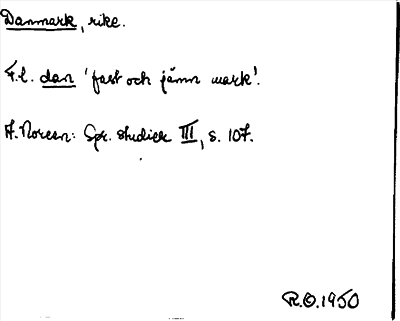 Danmark, rike.
F.l. dan 'fast och jämn mark'.
A. Noreen: Spr. studier III, s. 107.
R.O. 1950